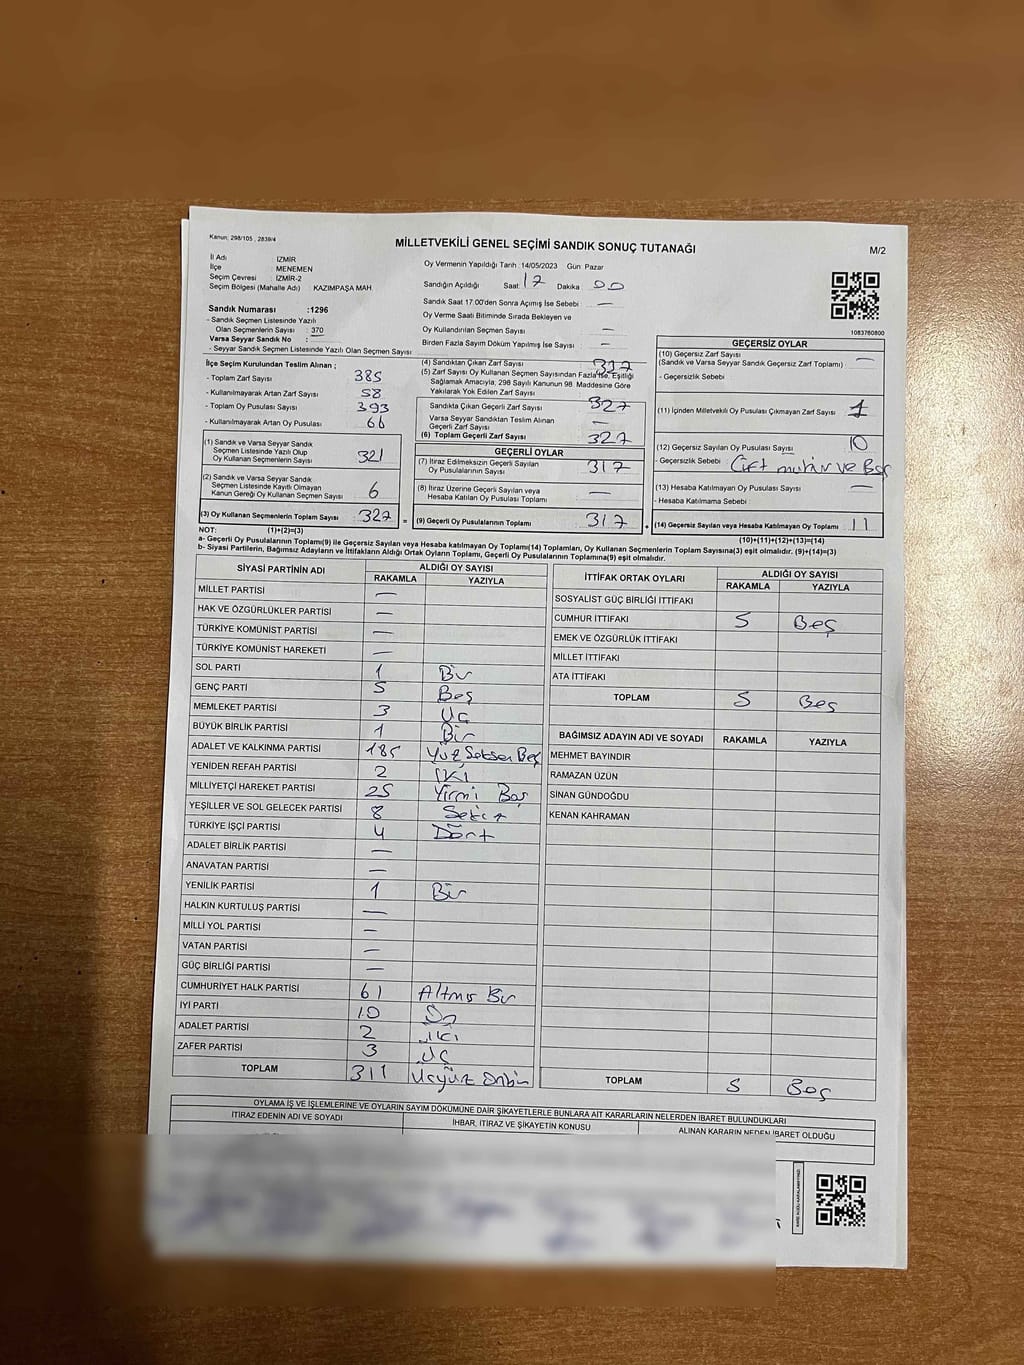 Kanun: 298/105 , 2839/4
MİLLETVEKİLİ GENEL SEÇİMİ SANDIK SONUÇ TUTANAĞI
M/2
İl Adı : İZMİR
İlçe : MENEMEN
Seçim Çevresi : İZMİR-2
Seçim Bölgesi (Mahalle Adı) : KAZIMPAŞA MAH.
Oy Vermenin Yapıldığı Tarih :14/05/2023 Gün: Pazar
Sandığın Açıldığı Saat: 17 Dakika : 00
Sandık Saat 17.00'den Sonra Açımış İse Sebebi : —
Oy Verme Saati Bitiminde Sırada Bekleyen ve
Oy Kullandırılan Seçmen Sayısı : —
Birden Fazla Sayım Döküm Yapılmış İse Sayısı : —
1083760800
Sandık Numarası :1296
- Sandık Seçmen Listesinde Yazılı
Olan Seçmenlerin Sayısı : 370
Varsa Seyyar Sandık No :
- Seyyar Sandık Seçmen Listesinde Yazılı Olan Seçmen Sayısı :
İlçe Seçim Kurulundan Teslim Alınan ;
- Toplam Zarf Sayısı : 385
- Kullanılmayarak Artan Zarf Sayısı : 58
- Toplam Oy Pusulası Sayısı : 393
- Kullanılmayarak Artan Oy Pusulası : 66
(1) Sandık ve Varsa Seyyar Sandık
Seçmen Listesinde Yazılı Olup
Oy Kullanan Seçmenlerin Sayısı : 321
(2) Sandık ve Varsa Seyyar Sandık
Seçmen Listesinde Kayıtlı Olmayan
Kanun Gereği Oy Kullanan Seçmen Sayısı : 6
(3) Oy Kullanan Seçmenlerin Toplam Sayısı : 327
(1)+(2)=(3)
(4) Sandıktan Çıkan Zarf Sayısı :
(5) Zarf Sayısı Oy Kullanan Seçmen Sayısından Fazla İse, Eşitliği
Sağlamak Amacıyla; 298 Sayılı Kanunun 98. Maddesine Göre
Yakılarak Yok Edilen Zarf Sayısı : —
Sandıkta Çıkan Geçerli Zarf Sayısı : 327
Varsa Seyyar Sandıktan Teslim Alınan
Geçerli Zarf Sayısı : —
(6) Toplam Geçerli Zarf Sayısı : 327
GEÇERLİ OYLAR
(7) İtiraz Edilmeksizin Geçerli Sayılan
Oy Pusulalarının Sayısı : 317
(8) İtiraz Üzerine Geçerli Sayılan veya
Hesaba Katılan Oy Pusulası Toplamı : —
(9) Geçerli Oy Pusulalarının Toplamı : 317
GEÇERSİZ OYLAR
(10) Geçersiz Zarf Sayısı
(Sandık ve Varsa Seyyar Sandık Geçersiz Zarf Toplamı) : —
- Geçersizlik Sebebi :
(11) İçinden Milletvekili Oy Pusulası Çıkmayan Zarf Sayısı : 1
(12) Geçersiz Sayılan Oy Pusulası Sayısı : 10
- Geçersizlik Sebebi : Çift mühür ve Boş
(13) Hesaba Katılmayan Oy Pusulası Sayısı : —
- Hesaba Katılmama Sebebi :
(14) Geçersiz Sayılan veya Hesaba Katılmayan Oy Toplamı : 11
(10)+(11)+(12)+(13)=(14)
NOT:
a- Geçerli Oy Pusulalarının Toplamı(9) ile Geçersiz Sayılan veya Hesaba katılmayan Oy Toplamı(14) Toplamları, Oy Kullanan Seçmenlerin Toplam Sayısına(3) eşit olmalıdır. (9)+(14)=(3)
b- Siyasi Partilerin, Bağımsız Adayların ve İttifakların Aldığı Ortak Oyların Toplamı, Geçerli Oy Pusulalarının Toplamına(9) eşit olmalıdır.
SİYASİ PARTİNİN ADI ALDIĞI OY SAYISI
RAKAMLA YAZIYLA
MİLLET PARTİSİ —
HAK VE ÖZGÜRLÜKLER PARTİSİ —
TÜRKİYE KOMÜNİST PARTİSİ —
TÜRKİYE KOMÜNİST HAREKETİ —
SOL PARTİ 1 Bir
GENÇ PARTİ 5 Beş
MEMLEKET PARTİSİ 3 Üç
BÜYÜK BİRLİK PARTİSİ 1 Bir
ADALET VE KALKINMA PARTİSİ 185 Yüz Seksen Beş
YENİDEN REFAH PARTİSİ 2 İKİ
MİLLİYETÇİ HAREKET PARTİSİ 25 Yirmi Beş
YEŞİLLER VE SOL GELECEK PARTİSİ 8 Sekiz
TÜRKİYE İŞÇİ PARTİSİ 4 Dört
ADALET BİRLİK PARTİSİ —
ANAVATAN PARTİSİ —
YENİLİK PARTİSİ 1 Bir
HALKIN KURTULUŞ PARTİSİ —
MİLLİ YOL PARTİSİ —
VATAN PARTİSİ —
GÜÇ BİRLİĞİ PARTİSİ —
CUMHURİYET HALK PARTİSİ 61 Altmış Bir
İYİ PARTİ 10 On
ADALET PARTİSİ 2 İki
ZAFER PARTİSİ 3 Üç
TOPLAM 311 Üçyüz Onbir
İTTİFAK ORTAK OYLARI ALDIĞI OY SAYISI
RAKAMLA YAZIYLA
SOSYALİST GÜÇ BİRLİĞİ İTTİFAKI
CUMHUR İTTİFAKI 5 Beş
EMEK VE ÖZGÜRLÜK İTTİFAKI
MİLLET İTTİFAKI
ATA İTTİFAKI
TOPLAM 5 Beş
BAĞIMSIZ ADAYIN ADI VE SOYADI RAKAMLA YAZIYLA
MEHMET BAYINDIR
RAMAZAN ÜZÜN
SİNAN GÜNDOĞDU
KENAN KAHRAMAN
TOPLAM 5 Beş
OYLAMA İŞ VE İŞLEMLERİNE VE OYLARIN SAYIM DÖKÜMÜNE DAİR ŞİKAYETLERLE BUNLARA AİT KARARLARIN NELERDEN İBARET BULUNDUKLARI
İTİRAZ EDENİN ADI VE SOYADI İHBAR, İTİRAZ VE ŞİKAYETİN KONUSU ALINAN KARARIN NEDEN İBARET OLDUĞU